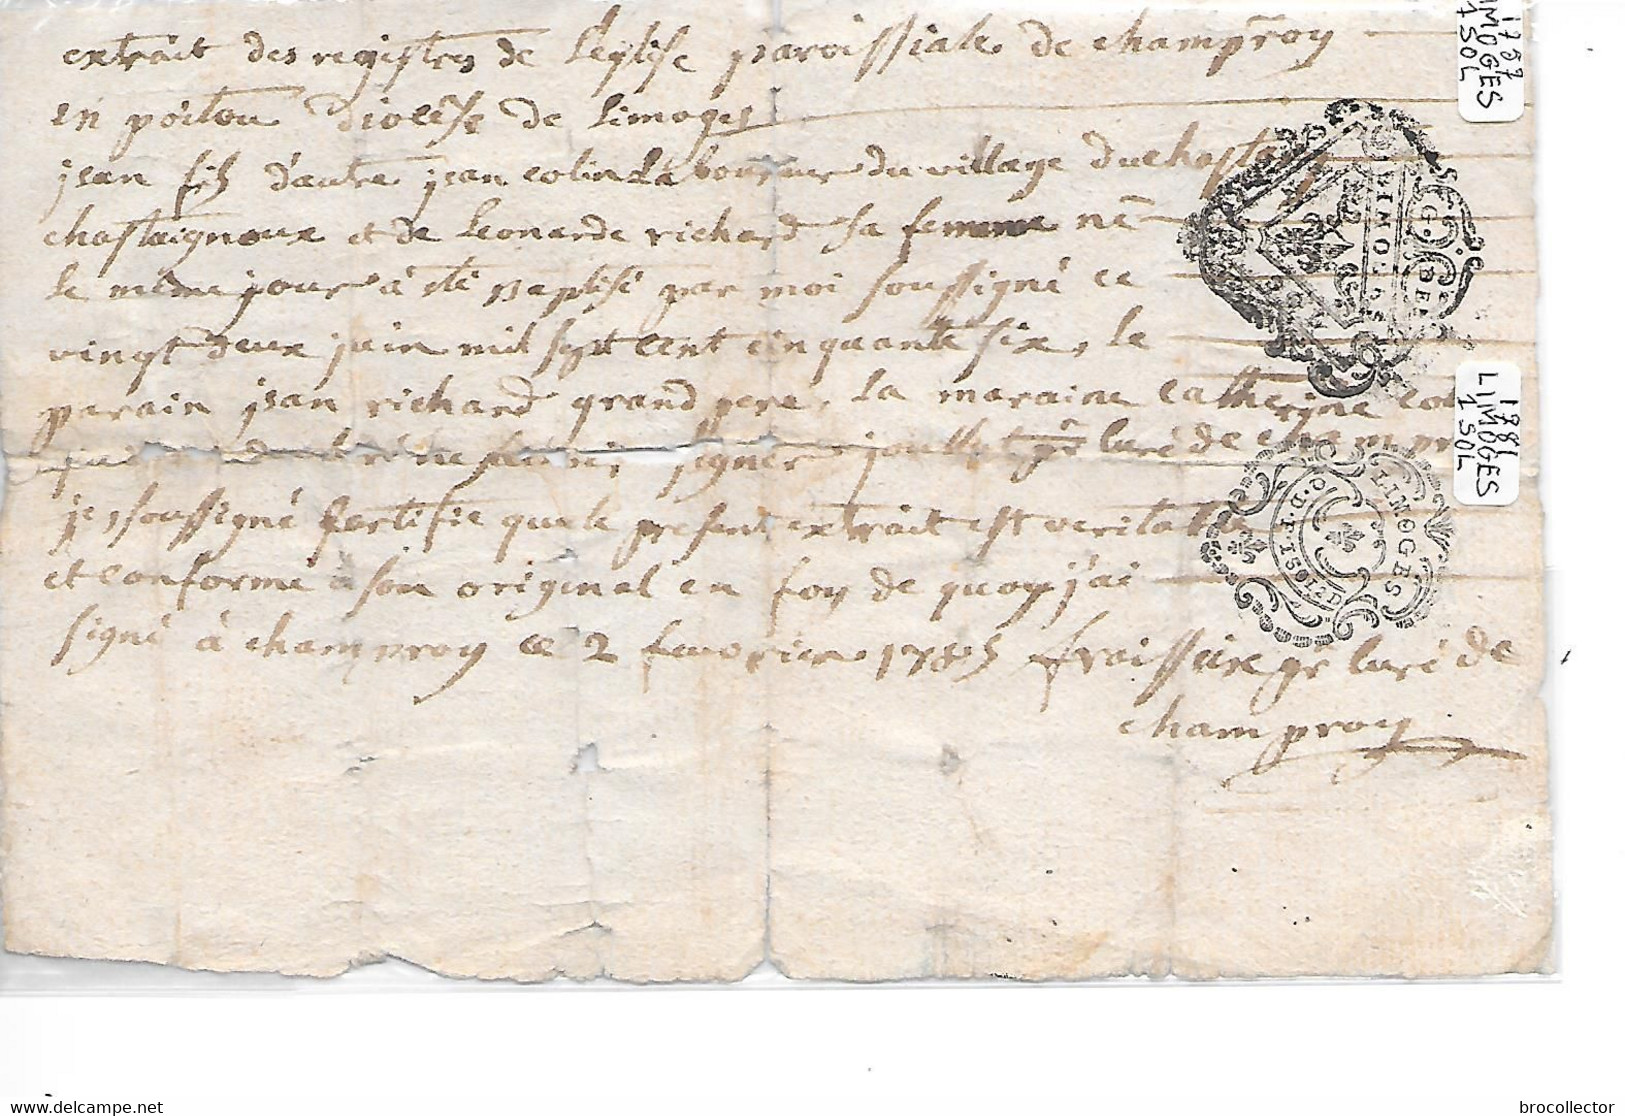 extrait des registres de leglise paroissiale de champroy
en poitou diocese de limoges
jean fils d'autre jean colin laboureur du village du
chastaignoux et de leonarde richard sa femme né
le même jour à été baptisé par moi soussigné ce
vingt deux juin mil sept cent cinquante six, le
parain jean richard grand pere, la maraine catherine
signer curé de
je ssoussigné sertifie que le present extrait est veritable
et conforme à son original en foy de quoy j'ai
signé à champroy ce 2 feuvrier 1785 froissiere pr curé de
champroy
G. DE
LIMOGES
LIMOGES
D.F. 1 SOL 2 D
1757
LIMOGES
1 SOL
1781
LIMOGES
1 SOL
delcampe.net
brocollector